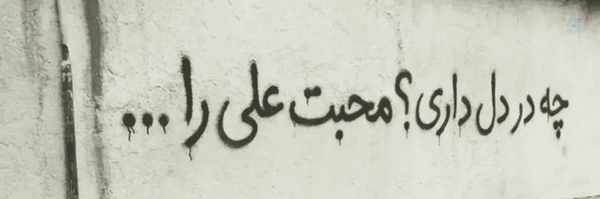 چه در دل داری؟ محبت علی را ...